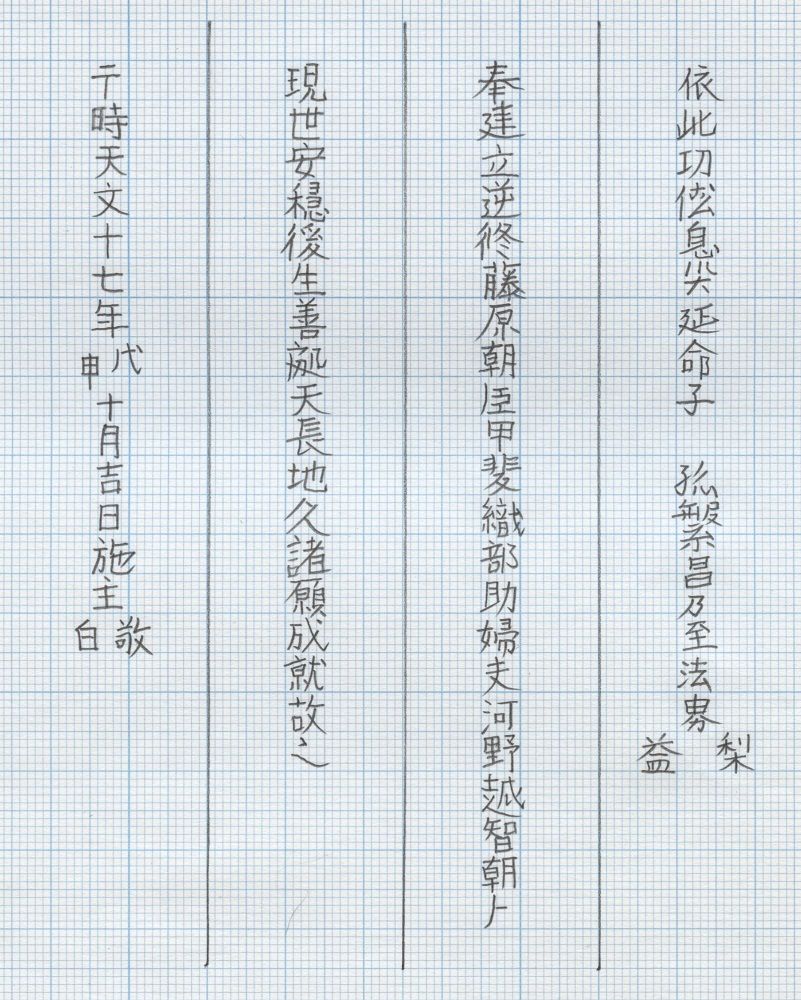 依此功息災延命子 孫繁昌乃至法界梨益
奉建立逆修藤原朝臣甲斐織部助婦夫河野越智朝卜
現世安穏後生善處天長地久諸願成就故之
于時天文十七年戊申十月吉日施主敬白